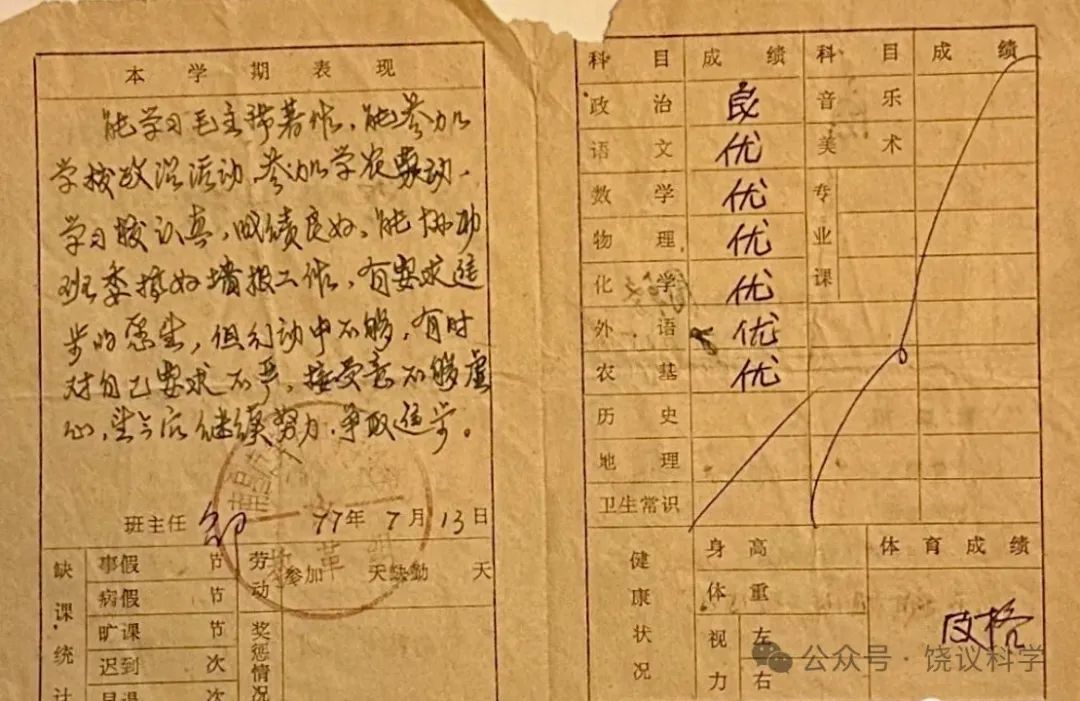 本学期表现
能学习毛主席著作，能参加
学校政治活动、参加学农劳动、
学习较认真，成绩良好、能协助
班委搞好墙报工作，有要求进
步的愿望，但行动中不够，有时
对自己要求不严，接受意不够虚
心，望今后继续努力，争取进步。
班主任 77年 7月 13日
缺课统计
事假 节
病假 节
旷课 节
迟到 次
早退 次
劳动
参加 天缺勤 天
奖惩情况
科目 成绩 科目 成绩
政治 良 音乐
语文 优 美术
数学 优 专业课
物理 优
化学 优
外语 优
农基 优
历史
地理
卫生常识
健康状况
身高
体重
视力 左
右
体育成绩
及格
公众号·饶议科学